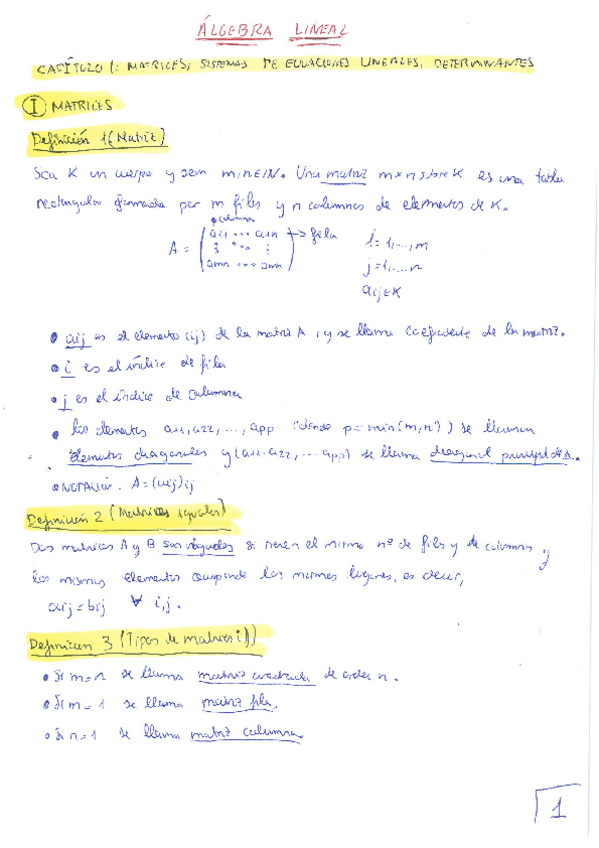 ÁLGEBRA LINEAL
CAPÍTULO 1: MATRICES, SISTEMAS DE ECUACIONES LINEALES, DETERMINANTES
I MATRICES
Definición 1 (Matriz)
Sea K un cuerpo y sean m,n∈ℕ. Una matriz m×n sobre K es una tabla
rectangular formada por m filas y n columnas de elementos de K.
columna
A = (a11 ... a1n → fila i=1,...,m
am1 ... amn) j=1,...,n
aij∈K
• aij es el elemento (ij) de la matriz A, y se llama coeficiente de la matriz.
• i es el índice de fila
• j es el índice de columna
• los elementos a11, a22, ..., app (donde p=min(m,n)) se llaman
elementos diagonales y (a11, a22, ... app) se llama diagonal principal de A.
• NOTACIÓN. A=(aij)ij
Definición 2 (Matrices iguales)
Dos matrices A y B son iguales si tienen el mismo nº de filas y de columnas y
los mismos elementos ocupando los mismos lugares, es decir,
aij = bij ∀ i,j.
Definición 3 (Tipos de matrices)
• Si m=n se llama matriz cuadrada de orden n.
• Si m=1 se llama matriz fila.
• Si n=1 se llama matriz columna
1